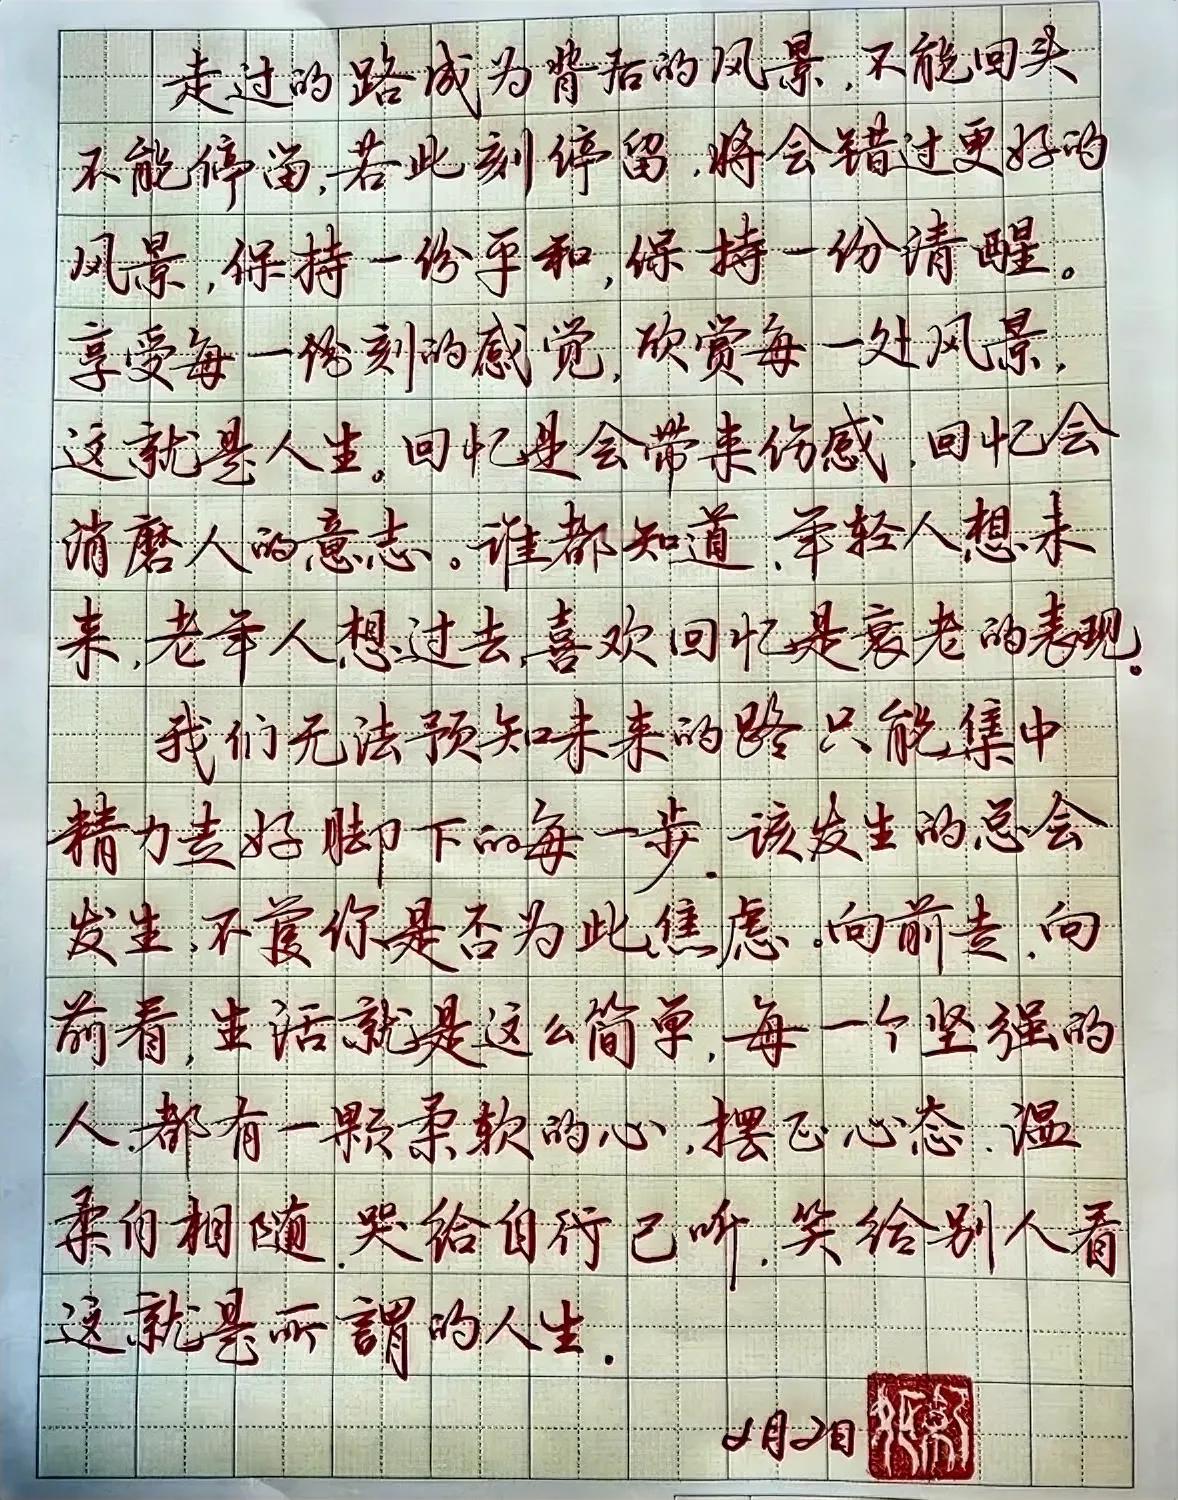 走过的路成为背后的风景,不能回头
不能停留,若此刻停留,将会错过更好的
风景,保持一份平和,保持一份清醒。
享受每一份刻的感觉,欣赏每一处风景,
这就是人生。回忆是会带来伤感,回忆会
消磨人的意志。谁都知道,年轻人想未
来,老年人想过去,喜欢回忆是衰老的表现。
我们无法预知未来的路只能集中
精力走好脚下的每一步.该发生的总会
发生,不管你是否为此焦虑。向前走,向
前看,生活就是这么简单,每一个坚强的
人,都有一颗柔软的心,摆正心态.温
柔自相随.哭给自行己听,笑给别人看
这就是所謂的人生.
2月2日